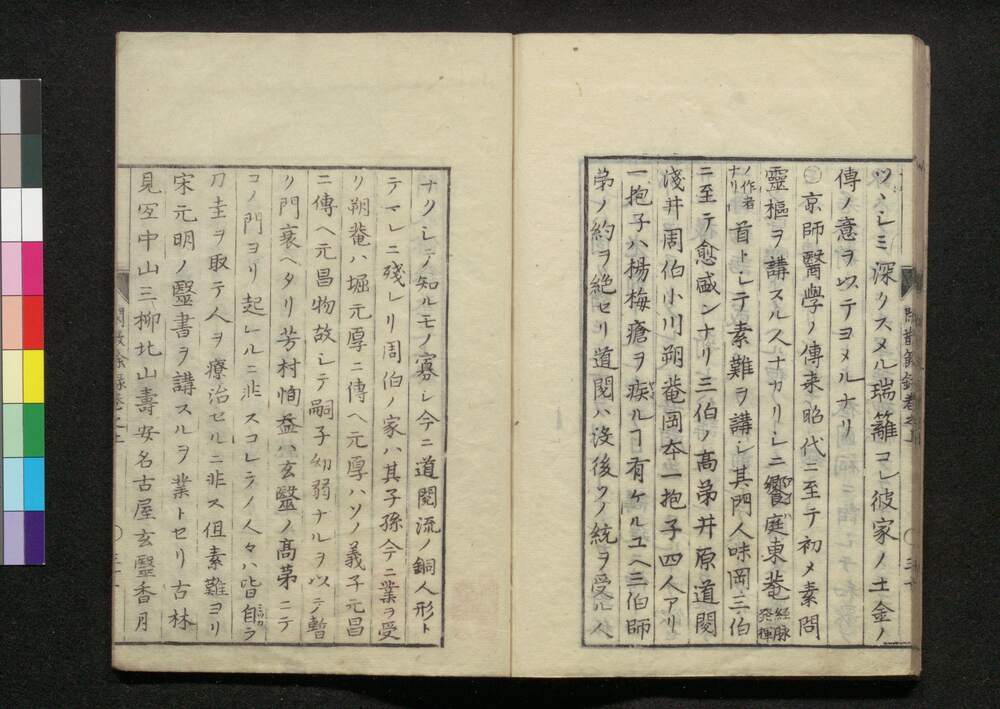 ツヽシミ深クスメル瑞籬コレ彼家ノ土金ノ
傳ノ意ヲ以テヨメルナリ
京師醫學ノ傳来昭代ニ至テ初メ素問
靈樞ヲ講スル人ナカリシニ饗庭東菴経脉発揮
ノ作者ナリ首トシテ素難ヲ講シ其門人味岡三伯
ニ至テ愈盛ンナリ三伯ノ髙弟井原道閲
淺井周伯小川朔菴岡本一抱子四人アリ
一抱子ハ楊梅瘡ヲ疾ルヿ有ケルユヘ三伯師
弟ノ約ヲ絶セリ道閲ハ没後ソノ統ヲ受ル人
ナクシテ知ルモノ寡シ今ニ道閲流ノ銅人形ト
テマレニ殘レリ周伯ノ家ハ其子孫今ニ業ヲ受
リ朔菴ハ堀元厚ニ傳ヘ元厚ハソノ義子元昌
ニ傳ヘ元昌物故シテ嗣子幼弱ナルヲ以テ暫
ク門衰ヘタリ芳村恂益ハ玄醫ノ髙第ニテ
コノ門ヨリ起レルニ非スコレラノ人々ハ皆自ラ
刀圭ヲ取テ人ヲ療治セルニ非ス但素難ヨリ
宋元明ノ醫書ヲ講スルヲ業トセリ古林
見宜中山三柳北山壽安名古屋玄醫香月